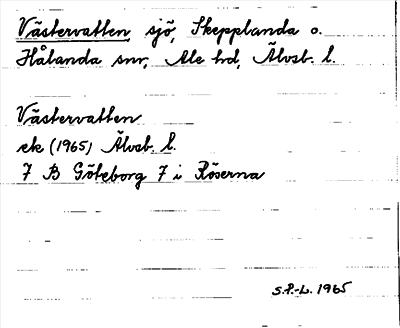 Västervatten, sjö, Skepplanda o.
Hålanda snr, Ale hd, Älvsb. l.
Västervatten
ek (1965) Älvsb. l.
7 B Göteborg 7 i Röserna
S.P.-L. 1965